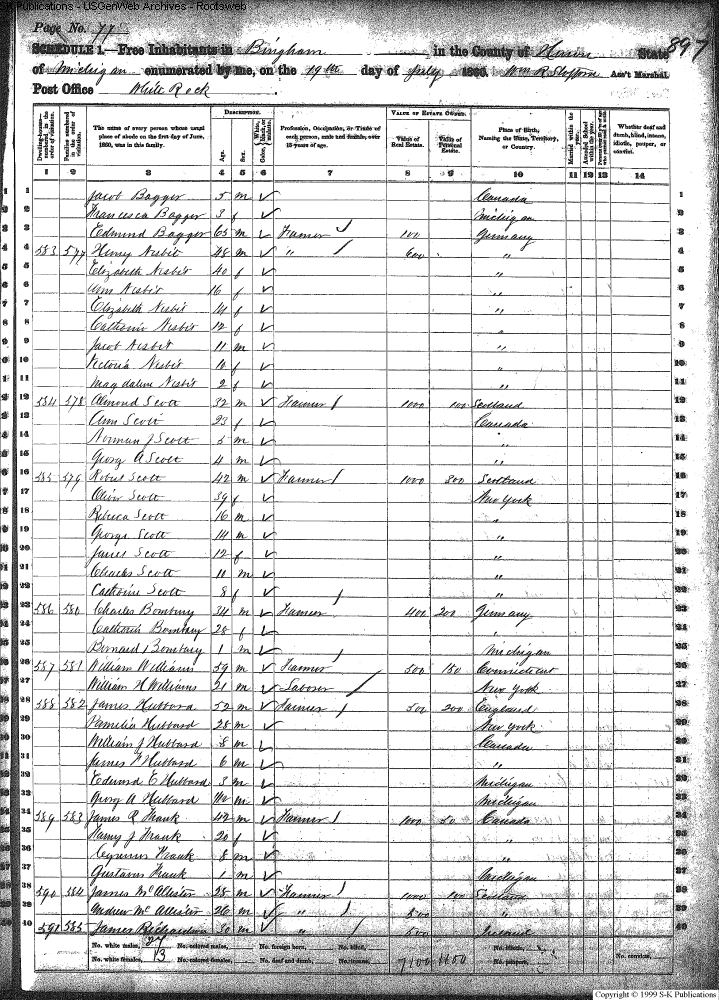 S-K Publications - USGenWeb Archives - Rootsweb
Page No. 77
897
SCHEDULE 1.—Free Inhabitants in Bingham in the County of Huron State
of Michigan enumerated by me, on the 19th day of July 1860. Wm R. Ass't Marshal.
Post Office White Rock
Dwelling-houses—numbered in the order of visitation.
Families numbered in the order of visitation.
The name of every person whose usual place of abode on the first day of June, 1860, was in this family.
DESCRIPTION.
Age. Sex. Color.
Profession, Occupation, or Trade of each person, male and female, over 15 years of age.
VALUE OF ESTATE OWNED.
Value of Real Estate. Value of Personal Estate.
Place of Birth, Naming the State, Territory, or Country.
Married within the year.
Attended School within the year.
Whether deaf and dumb, blind, insane, idiotic, pauper, or convict.
1 2 3 4 5 6 7 8 9 10 11 12 13 14
1 Jacob Bagger 5 m ✓ Canada 1
2 Francesca Bagger 3 f ✓ Michigan 2
3 Edmund Bagger 65 m ✓ Farmer 100 Germany 3
4 583 577 Henry Nesbit 48 m ✓ " / 600 " 4
5 Elizabeth Nesbit 40 f ✓ " 5
6 Ann Nesbit 16 f ✓ " 6
7 Elizabeth Nesbit 14 f ✓ " 7
8 Catherine Nesbit 12 f ✓ " 8
9 Jacob Nesbit 11 m ✓ " 9
10 Victoria Nesbit 10 f ✓ " 10
11 Magdalene Nesbit 2 f ✓ " 11
12 584 578 Almond Scott 32 m ✓ Farmer / 1000 100 Scotland 12
13 Ann Scott 23 f ✓ Canada 13
14 Norman J Scott 5 m ✓ " 14
15 Georg A Scott 4 m ✓ " 15
16 585 579 Robert Scott 42 m ✓ Farmer / 1000 300 Scotland 16
17 Oliver Scott 39 f ✓ New York 17
18 Rebeca Scott 16 m ✓ " 18
19 George Scott 14 m ✓ " 19
20 Janet Scott 12 f ✓ " 20
21 Charles Scott 10 m ✓ " 21
22 Catherine Scott 8 f ✓ " 22
23 586 580 Charles Bombury 34 m ✓ Farmer / 400 200 Germany 23
24 Catherine Bombury 28 f ✓ " 24
25 Bernard Bombury 1 m ✓ Michigan 25
26 587 581 William Williams 59 m ✓ Farmer / 500 150 Connecticut 26
27 William H Williams 21 m ✓ Laborer / New York 27
28 588 582 James Hubbard 52 m ✓ Farmer / 500 200 England 28
29 Pamelia Hubbard 28 m ✓ New York 29
30 William J Hubbard 8 m ✓ Canada 30
31 James F Hubbard 6 m ✓ " 31
32 Edward E Hubbard 3 m ✓ Michigan 32
33 Georg A Hubbard m ✓ Michigan 33
34 589 583 James R Frank 42 m ✓ Farmer / 1000 50 Canada 34
35 Harry J Frank 20 f ✓ " 35
36 Cyrenus Frank 8 m ✓ " 36
37 Gustavus Frank 1 m ✓ Michigan 37
38 590 584 James McAllister 28 m ✓ Farmer / 1000 100 Scotland 38
39 Andrew McAllister 26 m ✓ " / 800 " 39
40 591 585 James Richardson 30 m ✓ " / 500 Ireland 40
No. white males, 27 No. colored males, No. foreign born, No. blind,
No. white females, 13 No. colored females, No. deaf and dumb, No. insane, 7100 1100 No. idiotic, No. paupers, No. convicts,
Copyright © 1999 S-K Publications